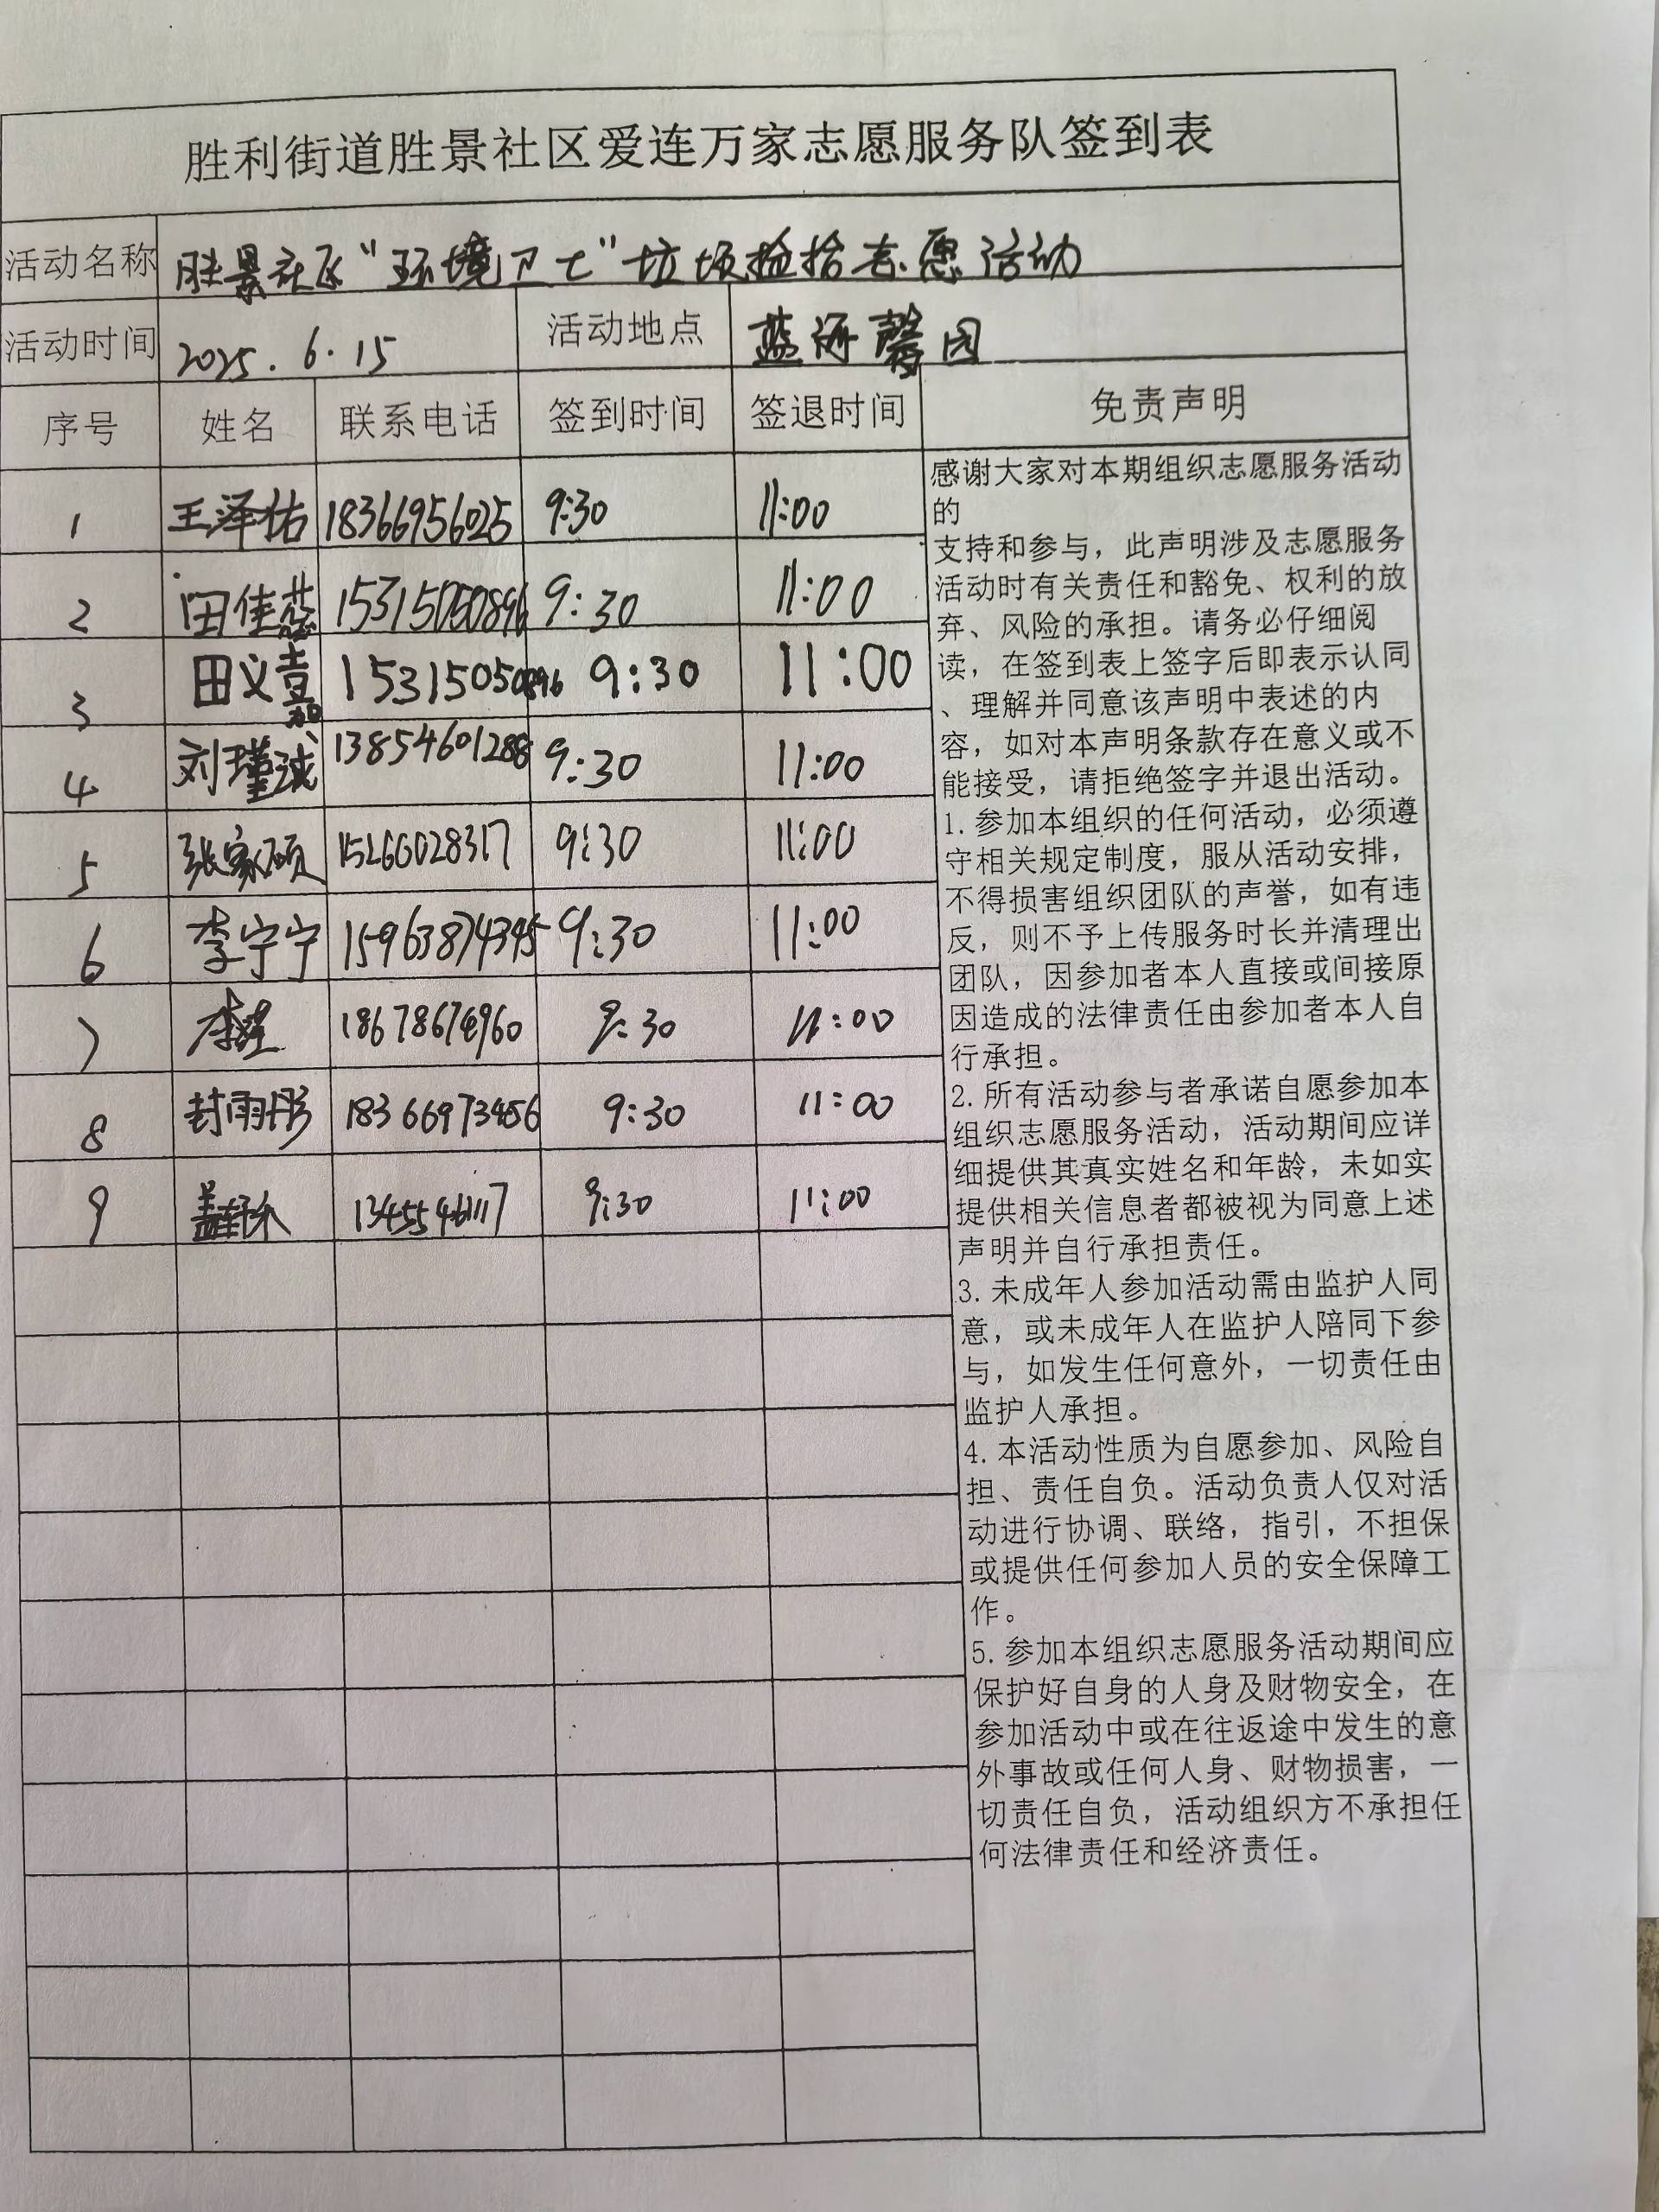 胜利街道胜景社区爱连万家志愿服务队签到表
活动名称 胜景社区“环境卫士”垃圾捡拾志愿活动
活动时间 2025.6.15 活动地点 蓝海馨园
序号 姓名 联系电话 签到时间 签退时间 免责声明
1 王泽佑 18366956025 9:30 11:00
2 田佳蕊 15315050896 9:30 11:00
3 田义嘉 15315050896 9:30 11:00
4 刘瑾诚 13854601288 9:30 11:00
5 张家硕 15266028317 9:30 11:00
6 李宁宁 15963874395 9:30 11:00
7 18678676960 9:30 11:00
8 封雨彤 18366973456 9:30 11:00
9 9:30 11:00
感谢大家对本期组织志愿服务活动
的
支持和参与，此声明涉及志愿服务
活动时有关责任和豁免、权利的放
弃、风险的承担。请务必仔细阅
读，在签到表上签字后即表示认同
、理解并同意该声明中表述的内
容，如对本声明条款存在意义或不
能接受，请拒绝签字并退出活动。
1.参加本组织的任何活动，必须遵
守相关规定制度，服从活动安排，
不得损害组织团队的声誉，如有违
反，则不予上传服务时长并清理出
团队，因参加者本人直接或间接原
因造成的法律责任由参加者本人自
行承担。
2.所有活动参与者承诺自愿参加本
组织志愿服务活动，活动期间应详
细提供其真实姓名和年龄，未如实
提供相关信息者都被视为同意上述
声明并自行承担责任。
3.未成年人参加活动需由监护人同
意，或未成年人在监护人陪同下参
与，如发生任何意外，一切责任由
监护人承担。
4.本活动性质为自愿参加、风险自
担、责任自负。活动负责人仅对活
动进行协调、联络，指引，不担保
或提供任何参加人员的安全保障工
作。
5.参加本组织志愿服务活动期间应
保护好自身的人身及财物安全，在
参加活动中或在往返途中发生的意
外事故或任何人身、财物损害，一
切责任自负，活动组织方不承担任
何法律责任和经济责任。